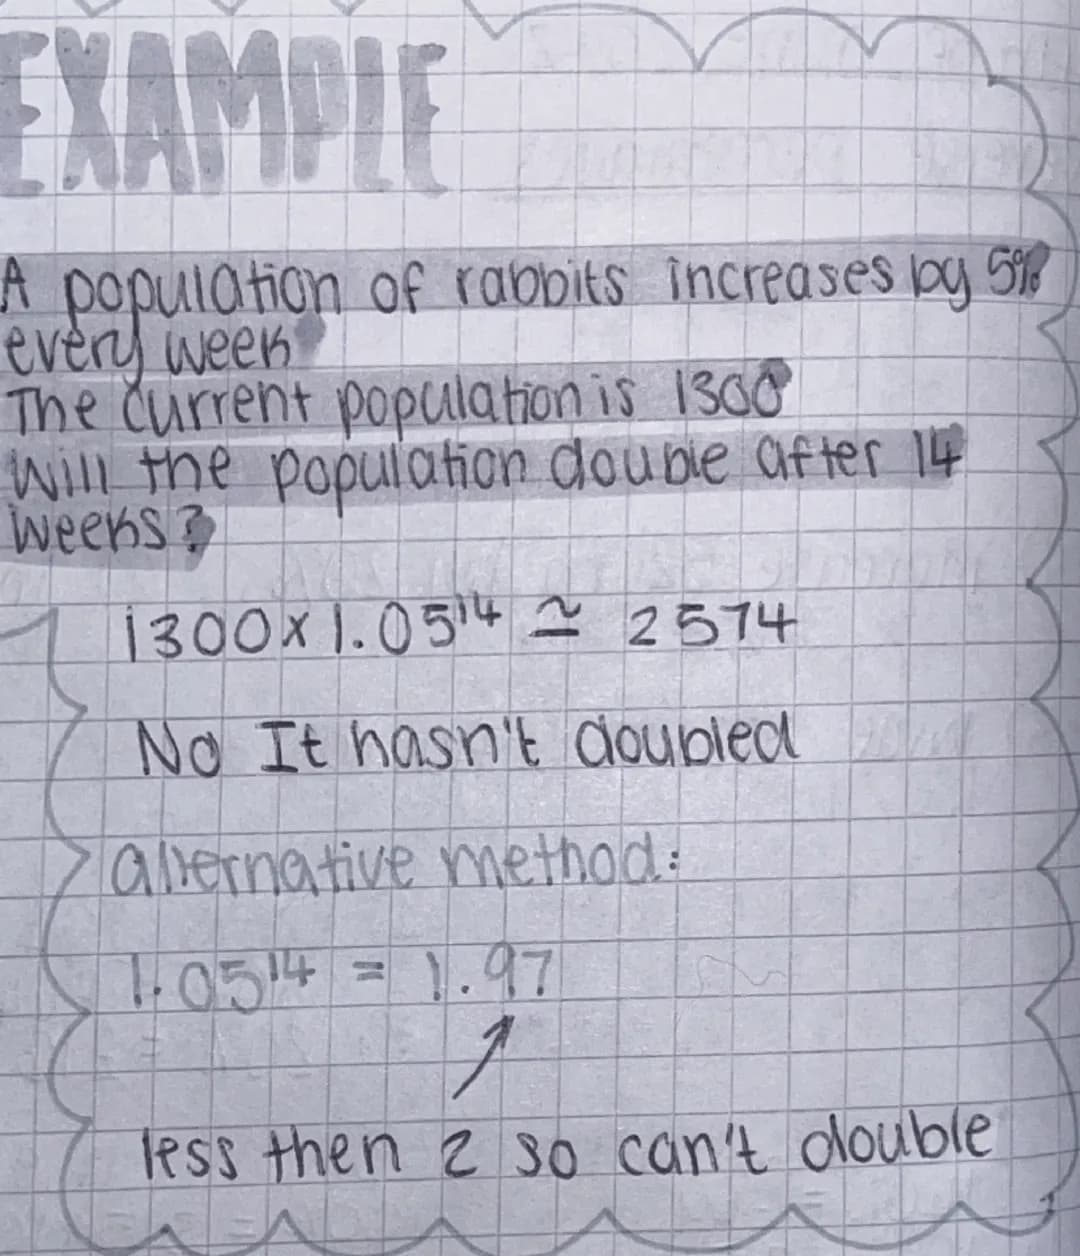 EXAMPLE
A population of rabbits increases by 5%
every week
The current population is 1300
Will the population double after 14
weeks?
1300 x 1.05¹⁴ ≃ 2574
No It hasn't doubled
alternative method:
1.05¹⁴ = 1.97
less then 2 so can't double